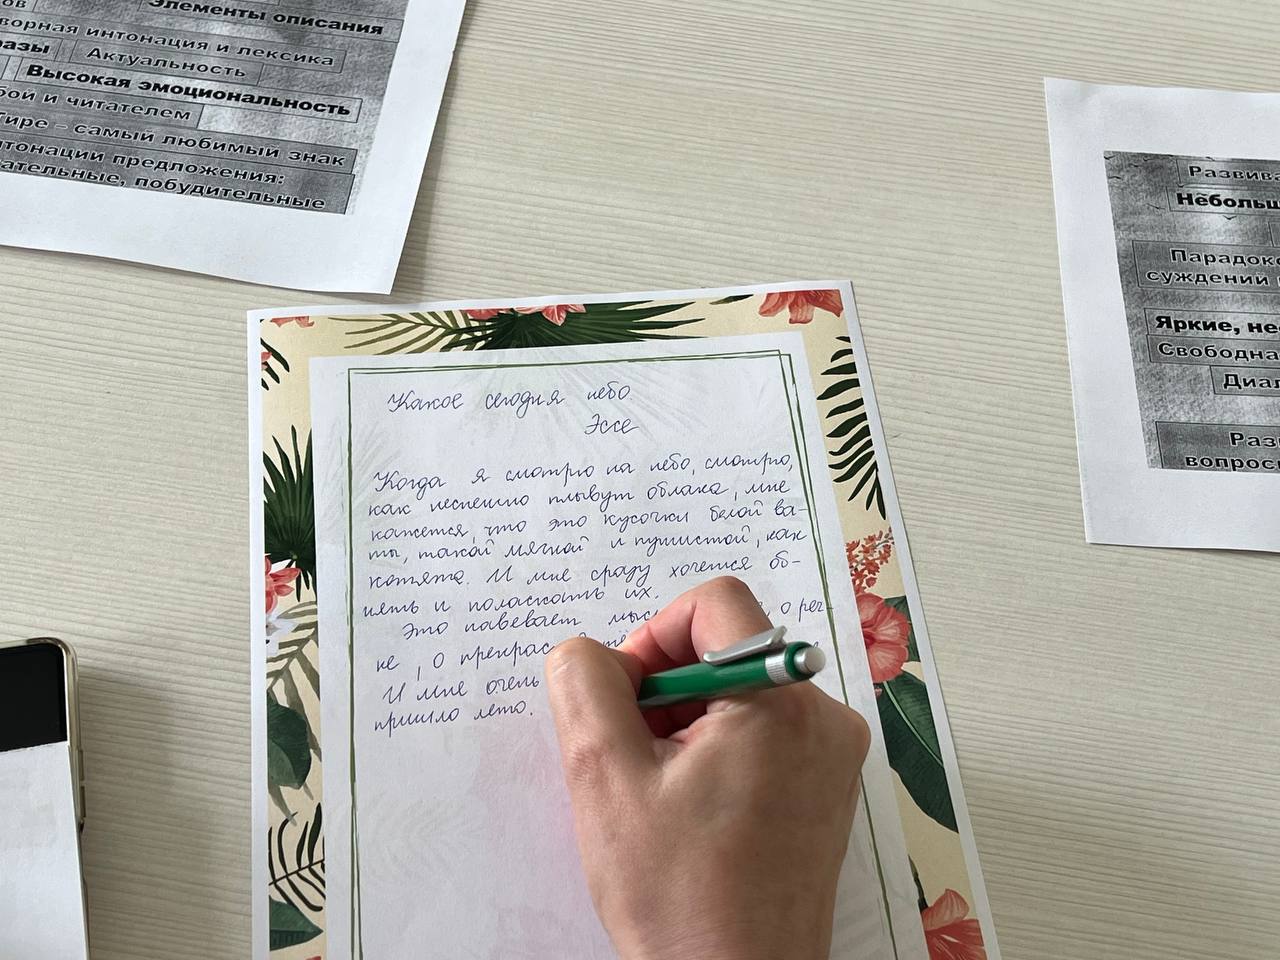 ов
Элементы описания
ворная интонация и лексика
разы
Актуальность
Высокая эмоциональность
бой и читателем
Тире – самый любимый знак
тонации предложения:
ательные, побудительные
Развива
Небольш
Парадокс
суждений
Яркие, не
Свободна
Диал
Раз
вопрос
Какое сегодня небо.
Эссе
Когда я смотрю на небо, смотрю,
как неспешно плывут облака, мне
кажется, что это кусочки белой ва-
ты, такой мягкой и пушистой, как
котята. И мне сразу хочется об-
нять и поласкать их.
Это навевает мысл о реч-
ке, о прекрас
И мне очень
пришло лето.